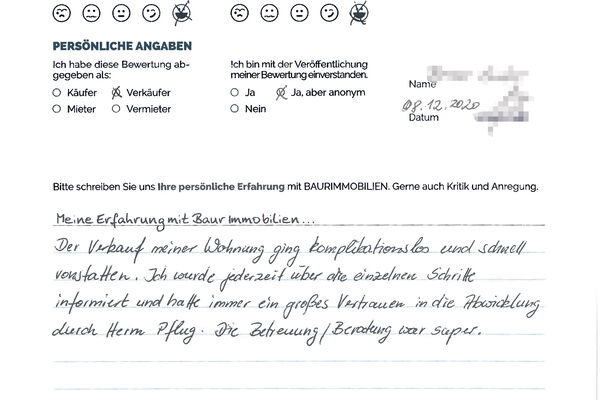 PERSÖNLICHE ANGABEN
Ich habe diese Bewertung ab-
gegeben als:
Käufer Verkäufer
Mieter Vermieter
Ich bin mit der Veröffentlichung
meiner Bewertung einverstanden.
Ja Ja, aber anonym
Nein
Name
08.12.2020
Datum
Bitte schreiben Sie uns Ihre persönliche Erfahrung mit BAURIMMOBILIEN. Gerne auch Kritik und Anregung.
Meine Erfahrung mit Baur Immobilien...
Der Verkauf meiner Wohnung ging komplikationslos und schnell
vonstatten. Ich wurde jederzeit über die einzelnen Schritte
informiert und hatte immer ein großes Vertrauen in die Abwicklung
durch Herrn Pflug. Die Betreuung/Beratung war super.